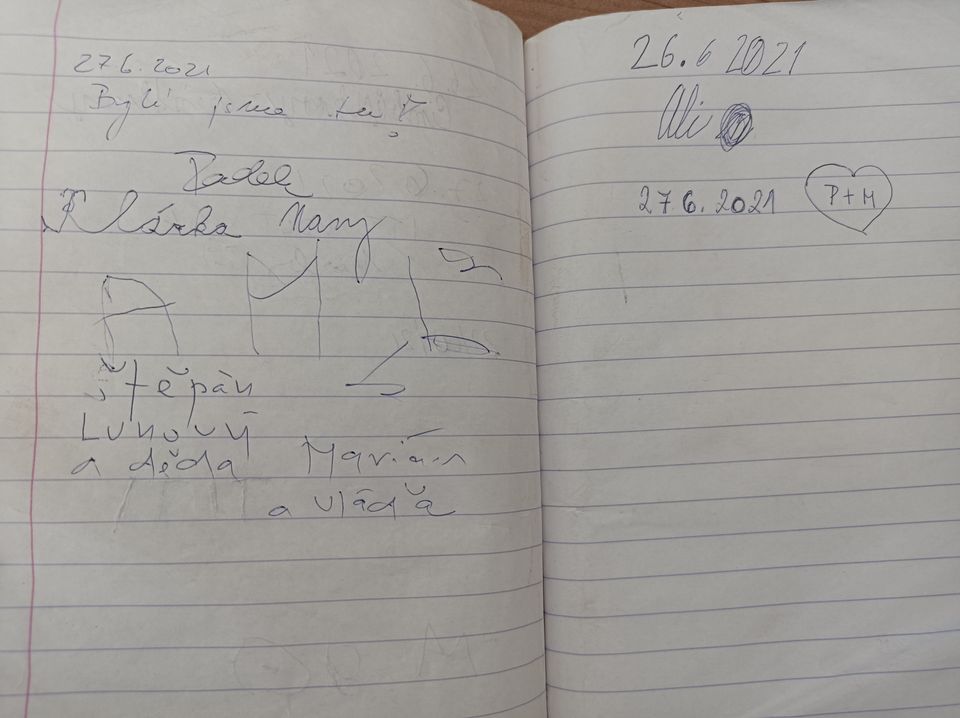 27.6.2021
Byli jsme tu!
Radek
Klárka
Štěpán
a děda Marián
a vláďa
26.6 2021
Ali
27.6.2021 P+M